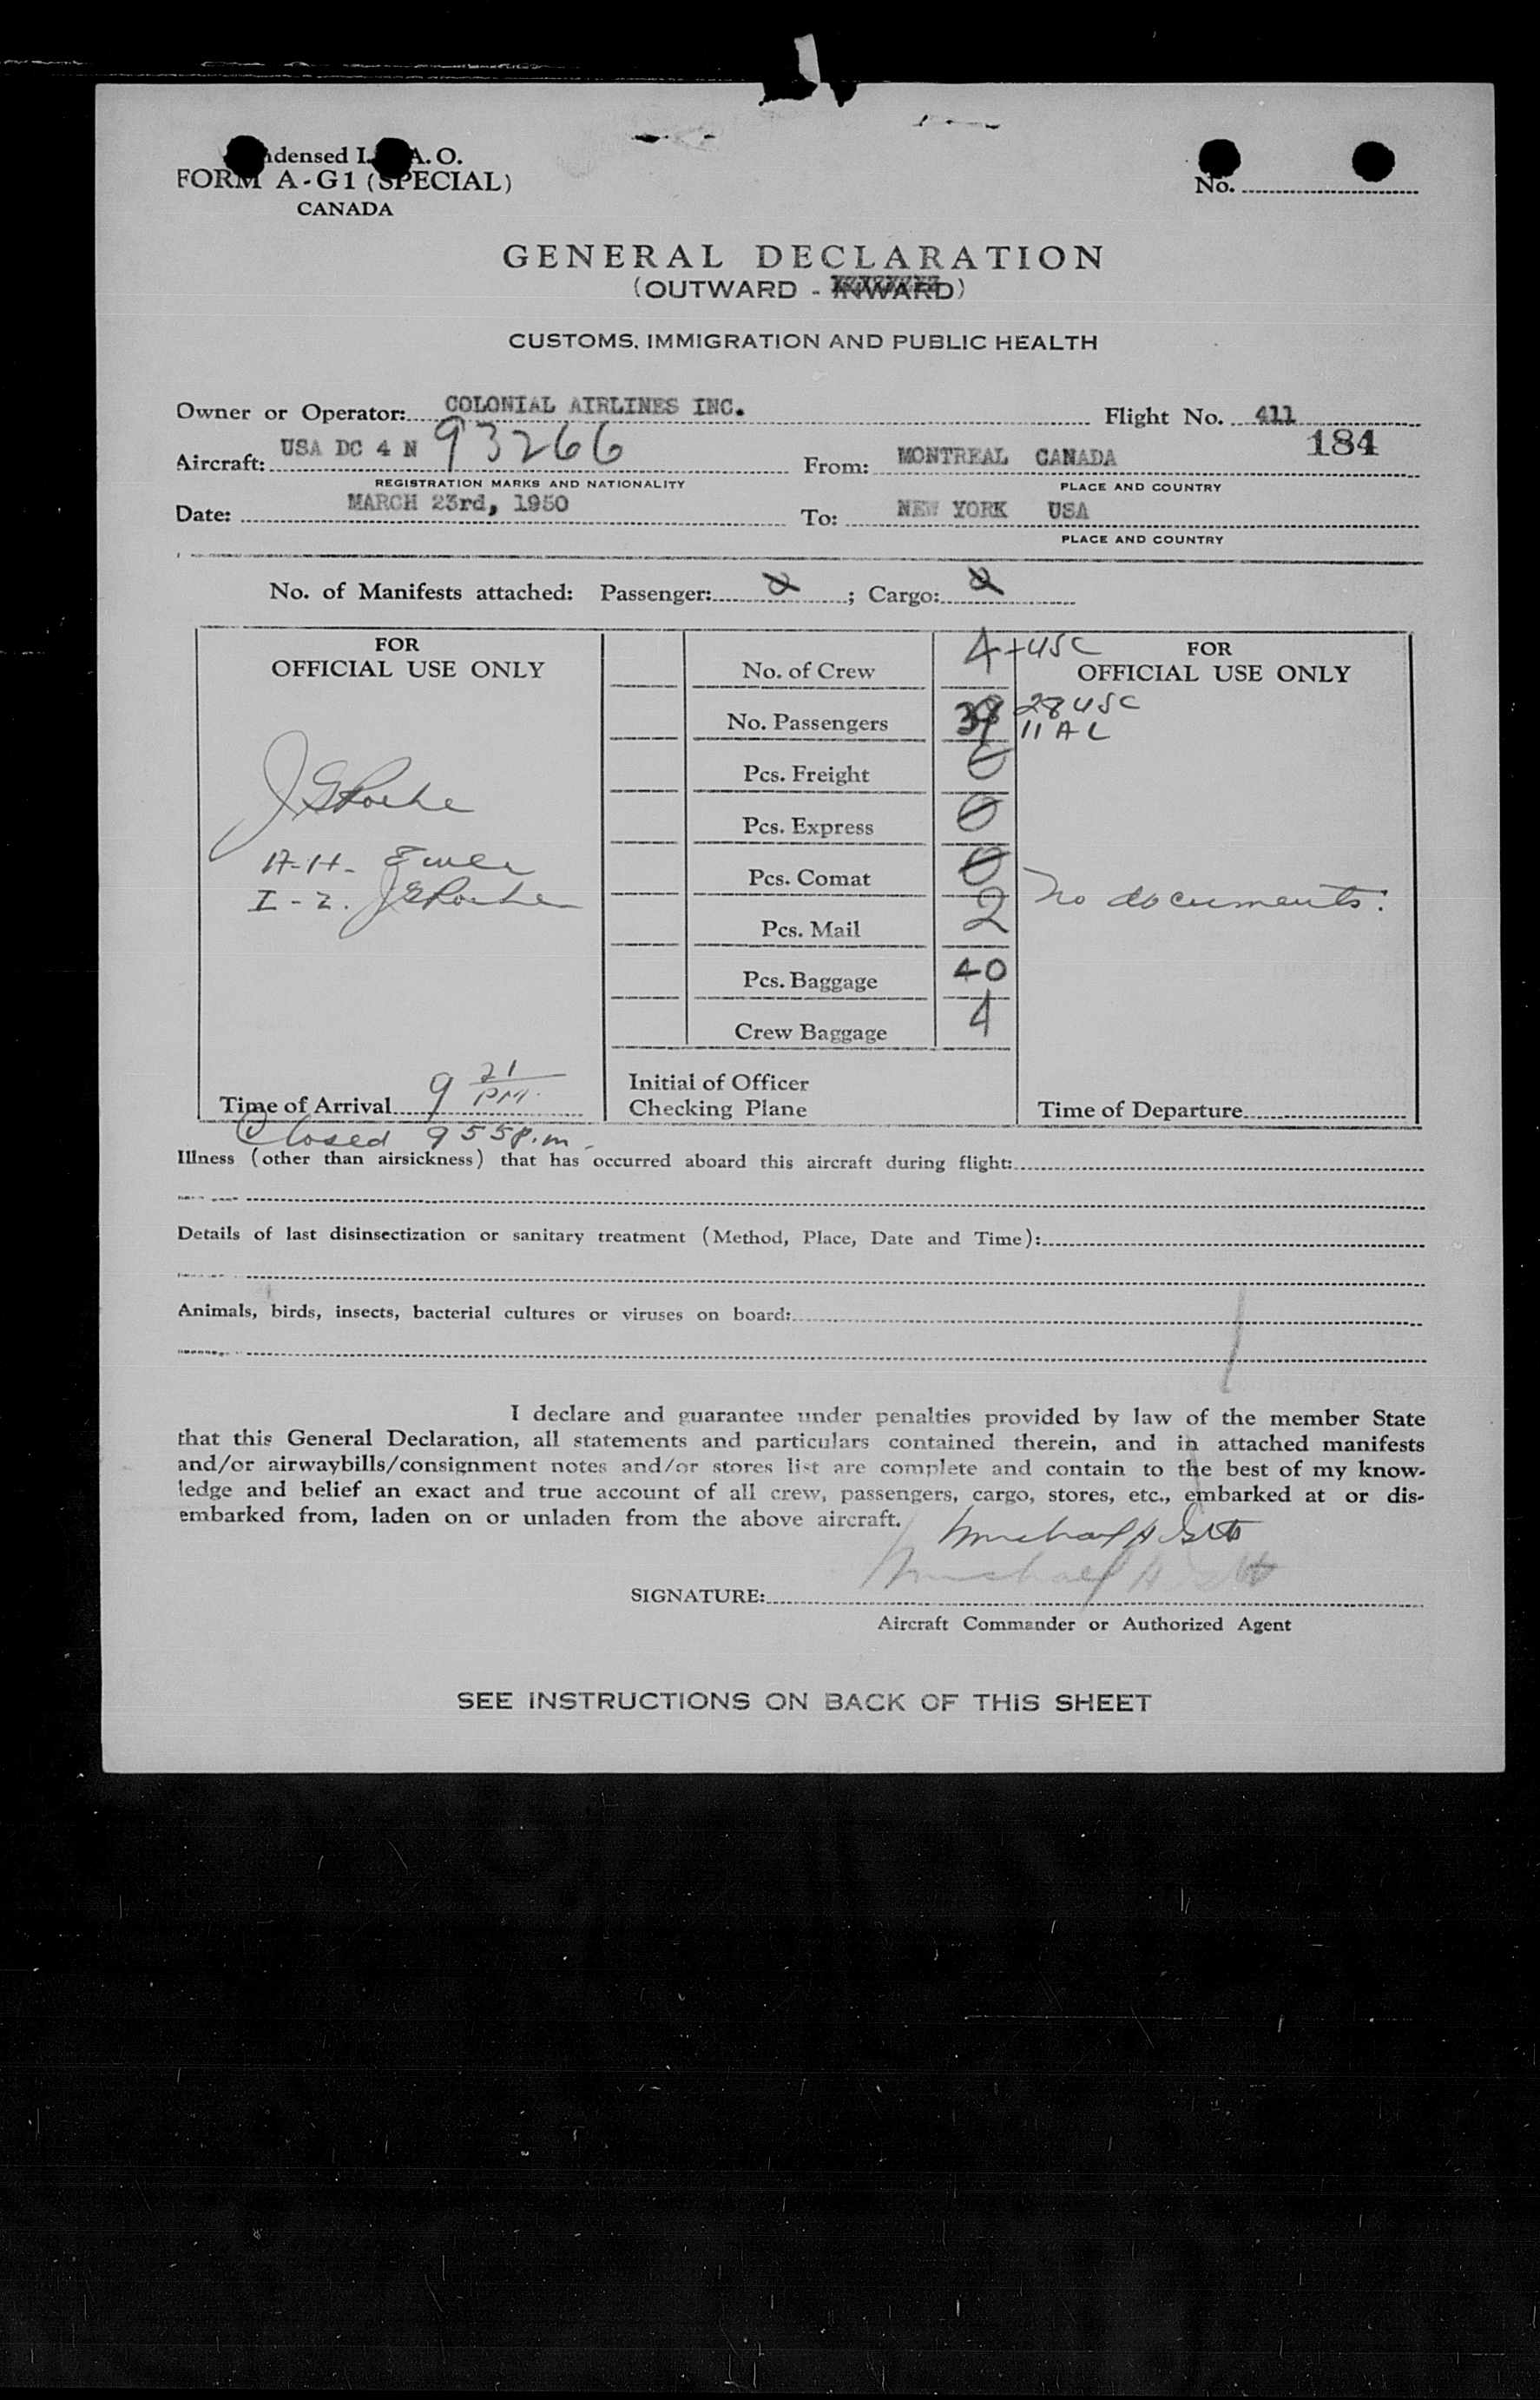 Condensed I.C.A.O.
FORM A-G1 (SPECIAL)
CANADA
No.
GENERAL DECLARATION
(OUTWARD - INWARD)
CUSTOMS, IMMIGRATION AND PUBLIC HEALTH
Owner or Operator: COLONIAL AIRLINES INC. Flight No. 411
184
Aircraft: USA DC 4 N 93266 From: MONTREAL CANADA
REGISTRATION MARKS AND NATIONALITY PLACE AND COUNTRY
Date: MARCH 23rd, 1950 To: NEW YORK USA
PLACE AND COUNTRY
No. of Manifests attached: Passenger: ; Cargo:
FOR
OFFICIAL USE ONLY
No. of Crew 4 + USC
FOR
OFFICIAL USE ONLY
No. Passengers 39 28 USC
11 AL
Pcs. Freight 0
Pcs. Express 0
Pcs. Comat 0
Pcs. Mail 2
Pcs. Baggage 40
Crew Baggage 4
J E Roche
A-H-
I-2. J E Roche
No documents.
Time of Arrival 9 21 PM.
Initial of Officer
Checking Plane
Time of Departure
Closed 9 55 p.m.
Illness (other than airsickness) that has occurred aboard this aircraft during flight:
Details of last disinsectization or sanitary treatment (Method, Place, Date and Time):
Animals, birds, insects, bacterial cultures or viruses on board:
I declare and guarantee under penalties provided by law of the member State
that this General Declaration, all statements and particulars contained therein, and in attached manifests
and/or airwaybills/consignment notes and/or stores list are complete and contain to the best of my know-
ledge and belief an exact and true account of all crew, passengers, cargo, stores, etc., embarked at or dis-
embarked from, laden on or unladen from the above aircraft.
Michael H
Michael H
SIGNATURE:
Aircraft Commander or Authorized Agent
SEE INSTRUCTIONS ON BACK OF THIS SHEET